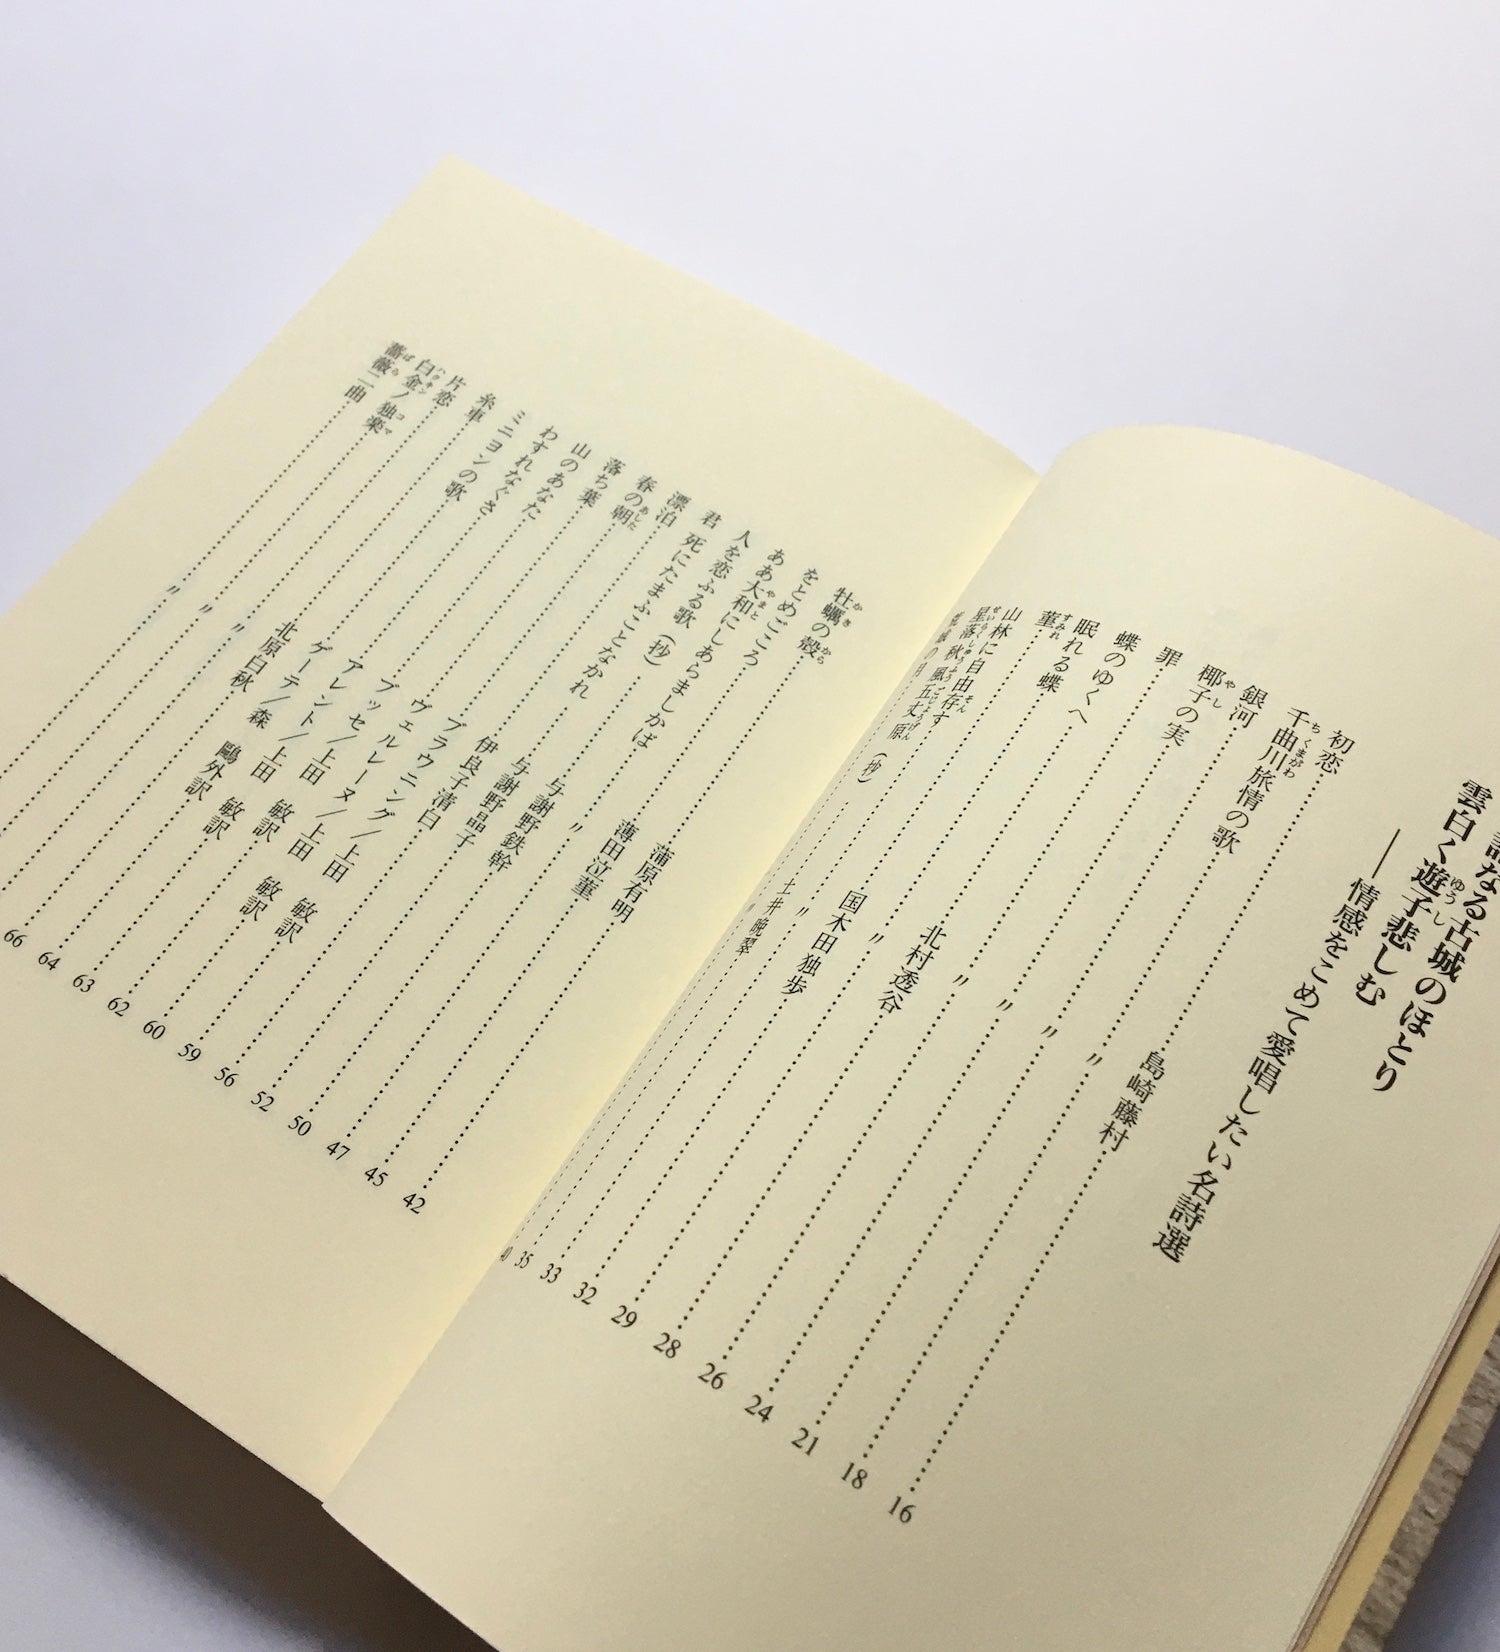 諸なる古城のほとり
雲白く遊子悲しむ
――情感をこめて愛唱したい名詩選
初恋……島崎藤村……16
千曲川旅情の歌……〃……18
銀河……〃……21
椰子の実……〃……24
罪……〃……26
蝶のゆくへ……北村透谷……28
眠れる蝶……〃……29
菫……国木田独歩……32
山林に自由存す……〃……33
星落秋風五丈原（抄）……土井晩翠……35
の月……〃……40
牡蠣の殻……蒲原有明……42
をとめごころ……薄田泣菫……45
ああ大和にしあらましかば……〃……47
人を恋ふる歌（抄）……与謝野鉄幹……50
君 死にたまふことなかれ……与謝野晶子……52
漂泊……伊良子清白……56
春の朝……ブラウニング／上田 敏訳……59
落ち葉……ヴェルレーヌ／上田 敏訳……60
山のあなた……ブッセ／上田 敏訳……62
わすれなぐさ……アレント／上田 敏訳……63
ミニヨンの歌……ゲーテ／森 鷗外訳……64
糸車……北原白秋……66
片恋……〃……
白金ノ独楽……〃……
薔薇二曲……〃……